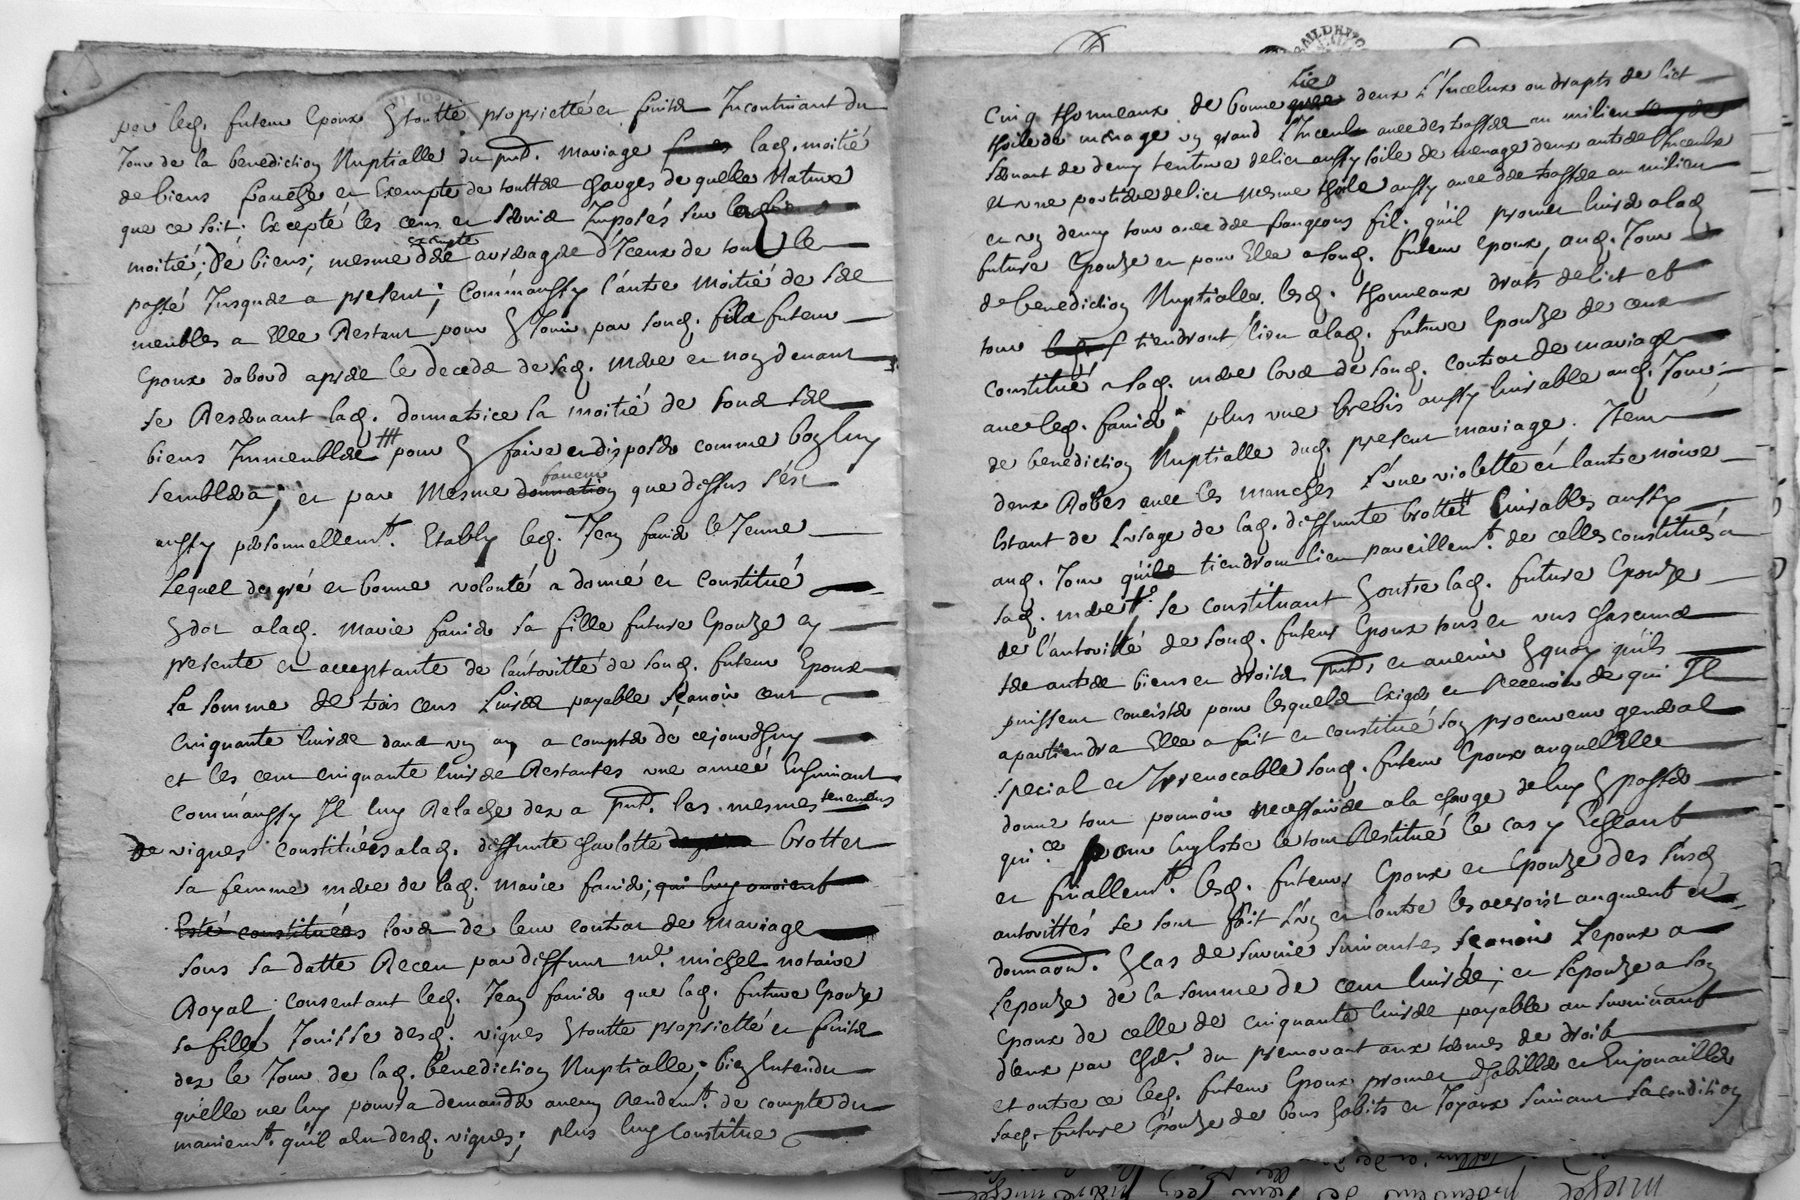 par led. futeur Epoux En toutte proprietté et fruits Incontinant du
Jour de la benediction Nuptialle du pnt. mariage lad. moitié
de biens franche et Exempte de touttes charges de quelle Nature
que ce soit. Excepté les cens et servis Imposés sur
moitié; de biens; mesme exempte des arrerages d'Iceux de tout le
passé Jusques a present; Comm'aussy l'autre moitié de ses
meubles a Elle Restant pour En Jouir par sond. fils futeur
Epoux dabord apres le deceds de sad. mere et non devant
se Reservant lad. donnatrice la moitié de tous ses
biens Immeubles pour En faire et disposer comme bon luy
semblera; et par mesme faveur donnation que dessus s'est
aussy personnellemt. Etably led. Jean faure le Jeune
Lequel de gré et bonne volonté a donné et Constitué
En dot a lad. Marie faure sa fille future Epouze cy
presente et acceptante de l'autoritté de sond. futeur Epoux
La somme de trois cens Livres payable sçavoir cent
Cinquante livres dans un an a compter de cejourdhuy
et les cent cinquante livres Restantes une année Ensuivant
Comm'aussy Il luy Relache dez a pnt. les mesmes
de vignes constituées a lad. deffunte Charlotte brottet
sa femme mere de lad. Marie faure; qui luy avoient
Esté constituées lors de leur contrat de Mariage
sous sa datte Receu par deffunt me. michel notaire
Royal; consentant led. Jean faure que lad. future Epouze
sa fille Jouisse desd. vignes En toutte proprietté et fruits
dez le Jour de lad. benediction Nuptialle; bien Entendu
qu'elle ne luy pourra demander aucun Rendemt. de compte du
maniemt. qu'il a eu desd. vignes; plus luy Constitue
Lie
Cinq thonneaux de bonne deux L'Inceulx ou drapts de lict
thoile de menage un grand L'Inceul avec des au milieu
servant de demy tenture de lict aussy toile de menage deux autres L'Inceulx
et une portiere de lict mesme thoile aussy avec des au milieu
et un demy tour avec des frangeons fil. qu'il promet livrer a lad.
future Epouze et pour Elle a sond. futeur epoux, aud. Jour
de benediction Nuptialle. lesd. thonneaux drats de lict et
tour tiendront lieu a lad. future Epouze de ceux
Constitué a sad. mere lors de sond. contrat de mariage
avec led. faure; plus une brebis aussy livrable aud. Jour
de benediction Nuptialle dud. present mariage. Item
deux Robes avec les manches L'une violette et l'autre noire
Estant de L'usage de lad. deffunte brottet livrables aussy
aud. Jour qu'ils tiendront lieu pareillemt. de celles constituées a
sad. mere. se constituant En outre lad. future Epouze
de l'autoritté de sond. futeur Epoux tous et uns chascuns
ses autres biens et droits pnts. et avenir En quoy qu'ils
puissent concister pour lesquels Exiger et Recevoir de qui Il
apartiendra Elle a fait et constitué son procureur general
special et Irrevocable sond. futeur Epoux auquel Elle
donne tout pouvoir necessaire a la charge de luy En passer
quice pour luy Estre le tout Restitué le cas y Echeant
et finallemt. lesd. futeurs Epoux et Epouze des susd.
autorittés se sont fait L'un et l'autre les accroist augment et
donnaons. En cas de survie suivantes, sçavoir L'epoux a
L'epouze de la somme de cent livres; et L'epouze a son
Epoux de celle de cinquante livres payable au survivant
d'eux par du premourant aux termes de droit
et outre ce led. futeur Epoux promet d'habiller et Enjouailler
sad. future Epouze de bons habits et Joyaux suivant sa condition